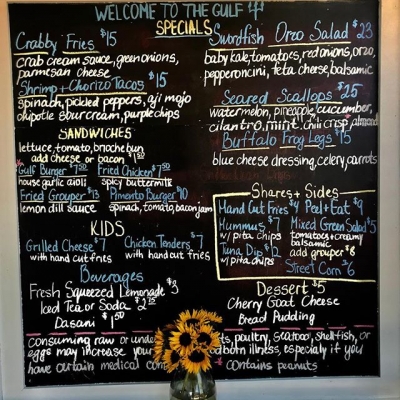 WELCOME TO THE GULF
SPECIALS
Crabby Fries $15
crab cream sauce, green onions,
parmesan cheese
Shrimp + Chorizo Tacos $15
spinach, pickled peppers, aji mojo
chipotle sour cream, purple chips
SANDWICHES
lettuce, tomato, brioche bun
add cheese or bacon $1.50
Gulf Burger $7.50
house garlic aioli
Fried Chicken $7.50
spicy buttermilk
Fried Grouper $13
lemon dill sauce
Pimento Burger $10
spinach, tomato, bacon jam
KIDS
Grilled Cheese $7
with hand cut fries
Chicken Tenders $7
with hand cut fries
Beverages
Fresh Squeezed Lemonade $3
Iced Tea or Soda $2.25
Dasani $1.50
Swordfish Orzo Salad $23
baby kale, tomatoes, red onions, orzo,
pepperoncini, feta cheese, balsamic
Seared Scallops $25
watermelon, pineapple, cucumber,
cilantro, mint, chili crisp, almond
Buffalo Frog Legs $15
blue cheese dressing, celery, carrots
Shares + Sides
Hand Cut Fries $4
Peel + Eat $9
Hummus $7
w/ pita chips
Mixed Green Salad $5
tomatoes + creamy
balsamic
add grouper $8
Tuna Dip $12
w/ pita chips
Street Corn $6
Dessert $5
Cherry Goat Cheese
Bread Pudding
consuming raw or under ts, poultry, seafood, shellfish, or
eggs may increase your foodborn illness, especialy if you
have certain medical con contains peanuts